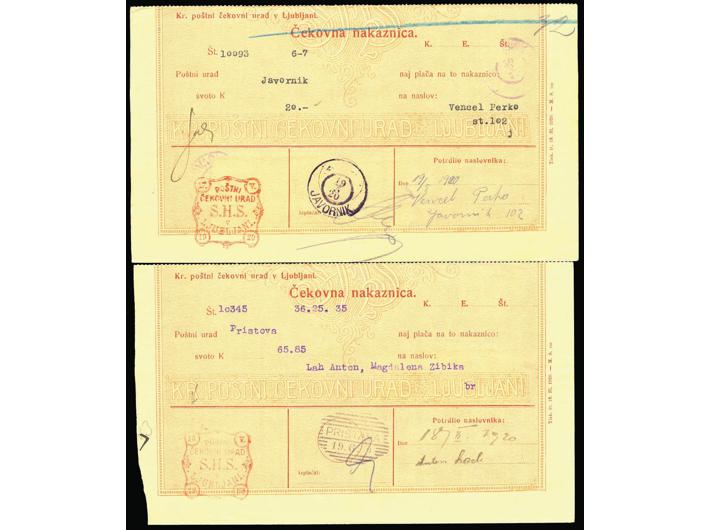 Kr. poštni čekovni urad v Ljubljani.
32
Čekovna nakaznica. K. E. Št.
Št. 10093 6-7
Poštni urad naj plača na to nakaznico:
Javornik
svoto K na naslov:
20.- Vencel Perko
st.102
KR. POŠTNI ČEKOVNI URAD LJUBLJANI
Potrdilo naslovnika:
Dne 19/ 1920
Vencel Perko
Javornik 102
POŠTNI
ČEKOVNI URAD
S.H.S.
V
LJUBLJANI.
19 20
19
20
JAVORNIK
Izplačal:
Kr. poštni čekovni urad v Ljubljani.
Čekovna nakaznica. K. E. Št.
Št. 10345 36.25. 35
Poštni urad Pristova naj plača na to nakaznico:
svoto K 65.85 na naslov:
Lah Anton, Magdalena Zibika
br
KR. POŠTNI ČEKOVNI URAD LJUBLJANI
Potrdilo naslovnika:
Dne 18/II 1920
Anton Lach
POŠTNI
ČEKOVNI URAD
S.H.S.
LJUBLJANI.
Izplačal: